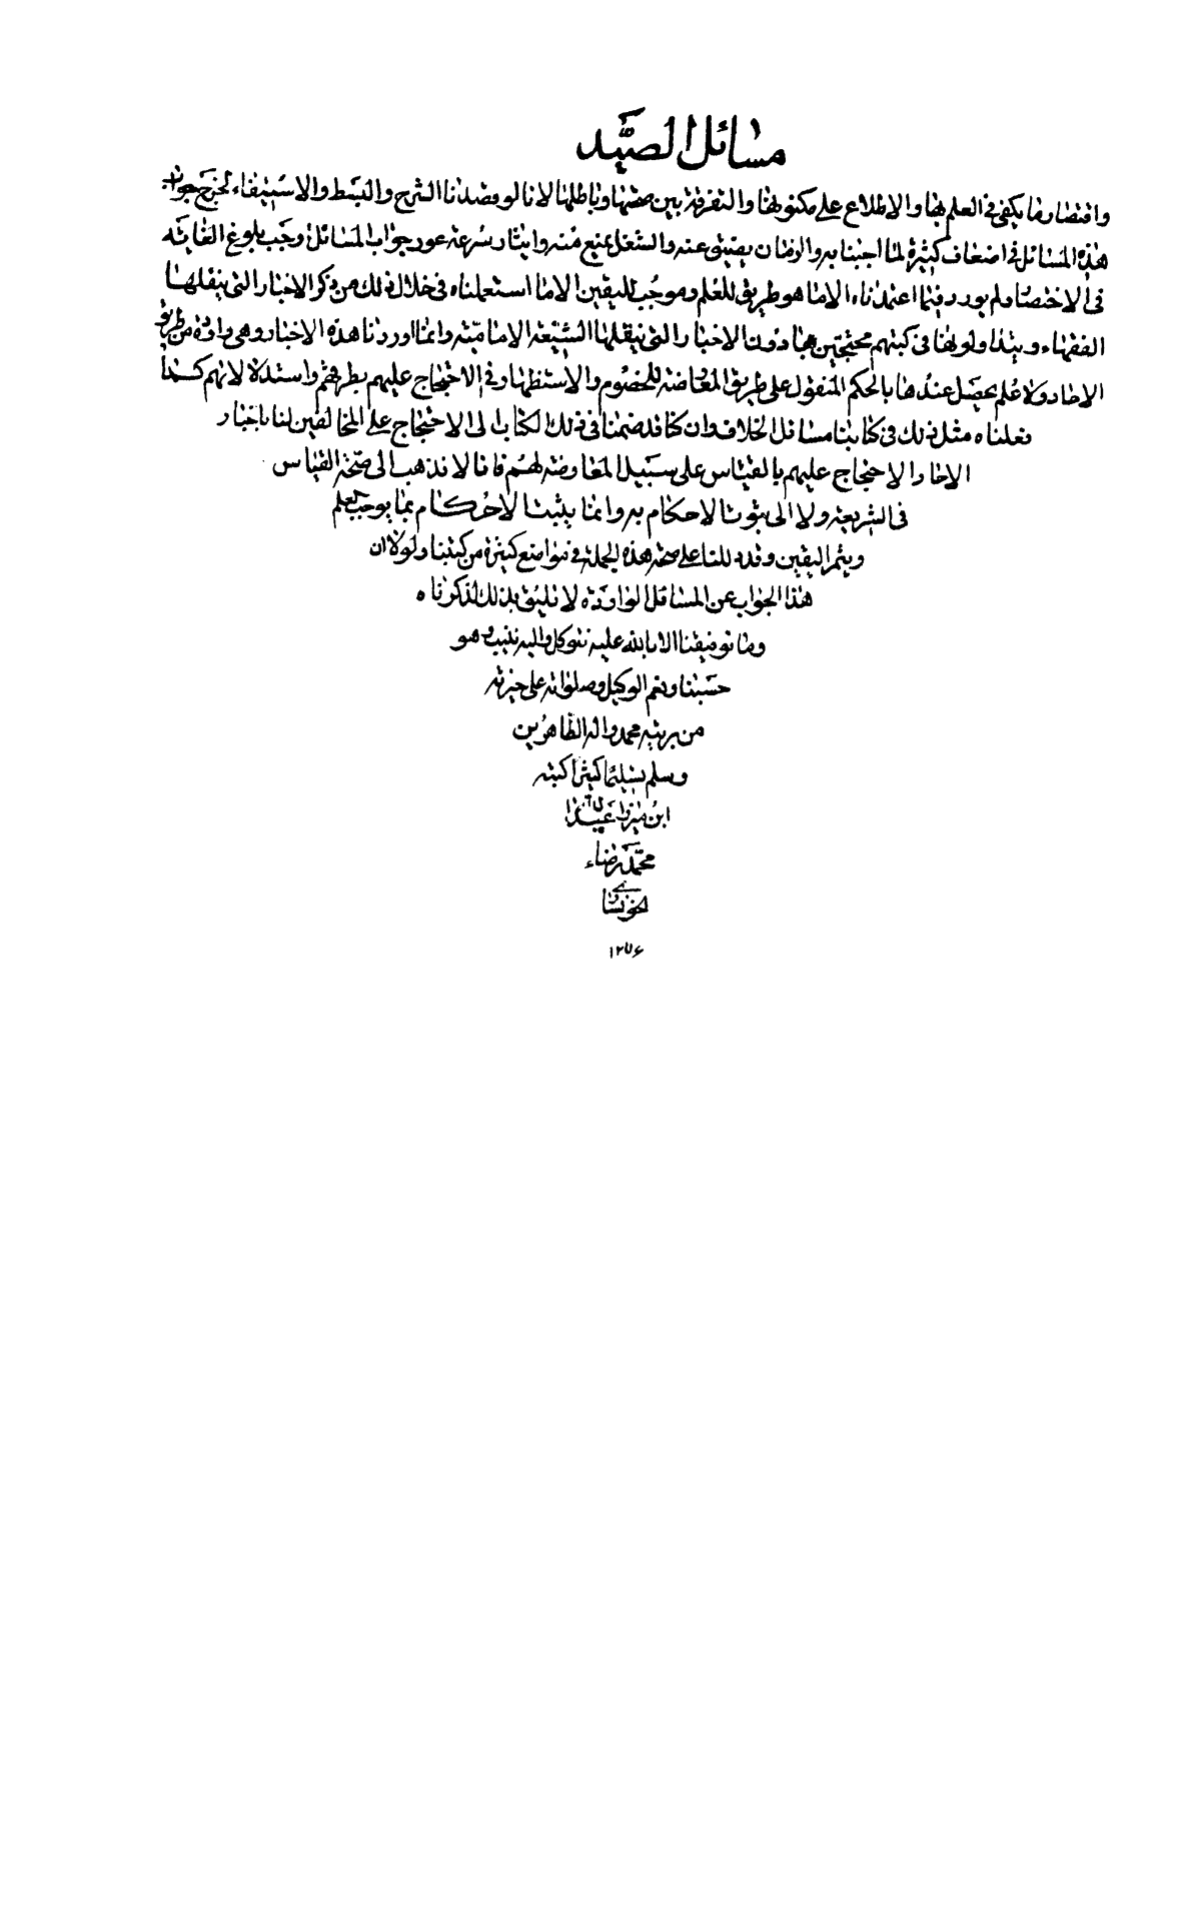 مسائل الصيد
واختصار ما يكفى فى العلم بها والاطلاع على مكنونها والتفرقة بين صحتها وباطلها لانا لو قصدنا الشرح والبسط والاستيفاء لخرج جواب
هذه المسائل فى اضعاف كثيرة لما اجبنا به والزمان يضيق عنه والشغل يمنع منه وايثار سرعة عود جواب المسائل اوجب بلوغ الغاية
فى الاختصار ولم نورد فيما اعتمدناه الا ما هو طريق للعلم وموجب لليقين الا ما استعملناه فى خلال ذلك من ذكر الاخبار التى ينقلها
الفقهاء ويتداولونها فى كتبهم محتجين بها دون الاخبار التى ينقلها الشيعة الامامية وانما اوردنا هذه الاخبار وهى واردة من طريق
الاحاد ولا علم يحصل عندها بالحكم المنقول على طريق المعارضة للخصوم والاستظهار فى الاحتجاج عليهم بطرقهم واستدلالاتهم كما
فعلناه مثل ذلك فى كتابنا مسائل الخلاف وان كنا قد ضمنا فى ذلك الكتاب الى الاحتجاج على المخالفين لنا باخبار
الاحاد الاحتجاج عليهم بالقياس على سبيل المعارضة لهم فانا لا نذهب الى صحة القياس
فى الشريعة ولا الى ثبوت الاحكام به وانما يثبت الاحكام بما يوجب العلم
ويثمر اليقين وقد دللنا على صحة هذه الجملة فى مواضع كثيرة من كتبنا ولولا ان
هذا الجواب عن المسائل الواردة لا تليق بذلك لذكرناه
وما توفيقنا الا بالله عليه نتوكل واليه ننيب وهو
حسبنا ونعم الوكيل وصلواته على خيرته
من بريته محمد واله الطاهرين
وسلم تسليما كثيرا كتبه
ابن ميرزا
محمد رضاء
الخونسارى
۱۲۷۶